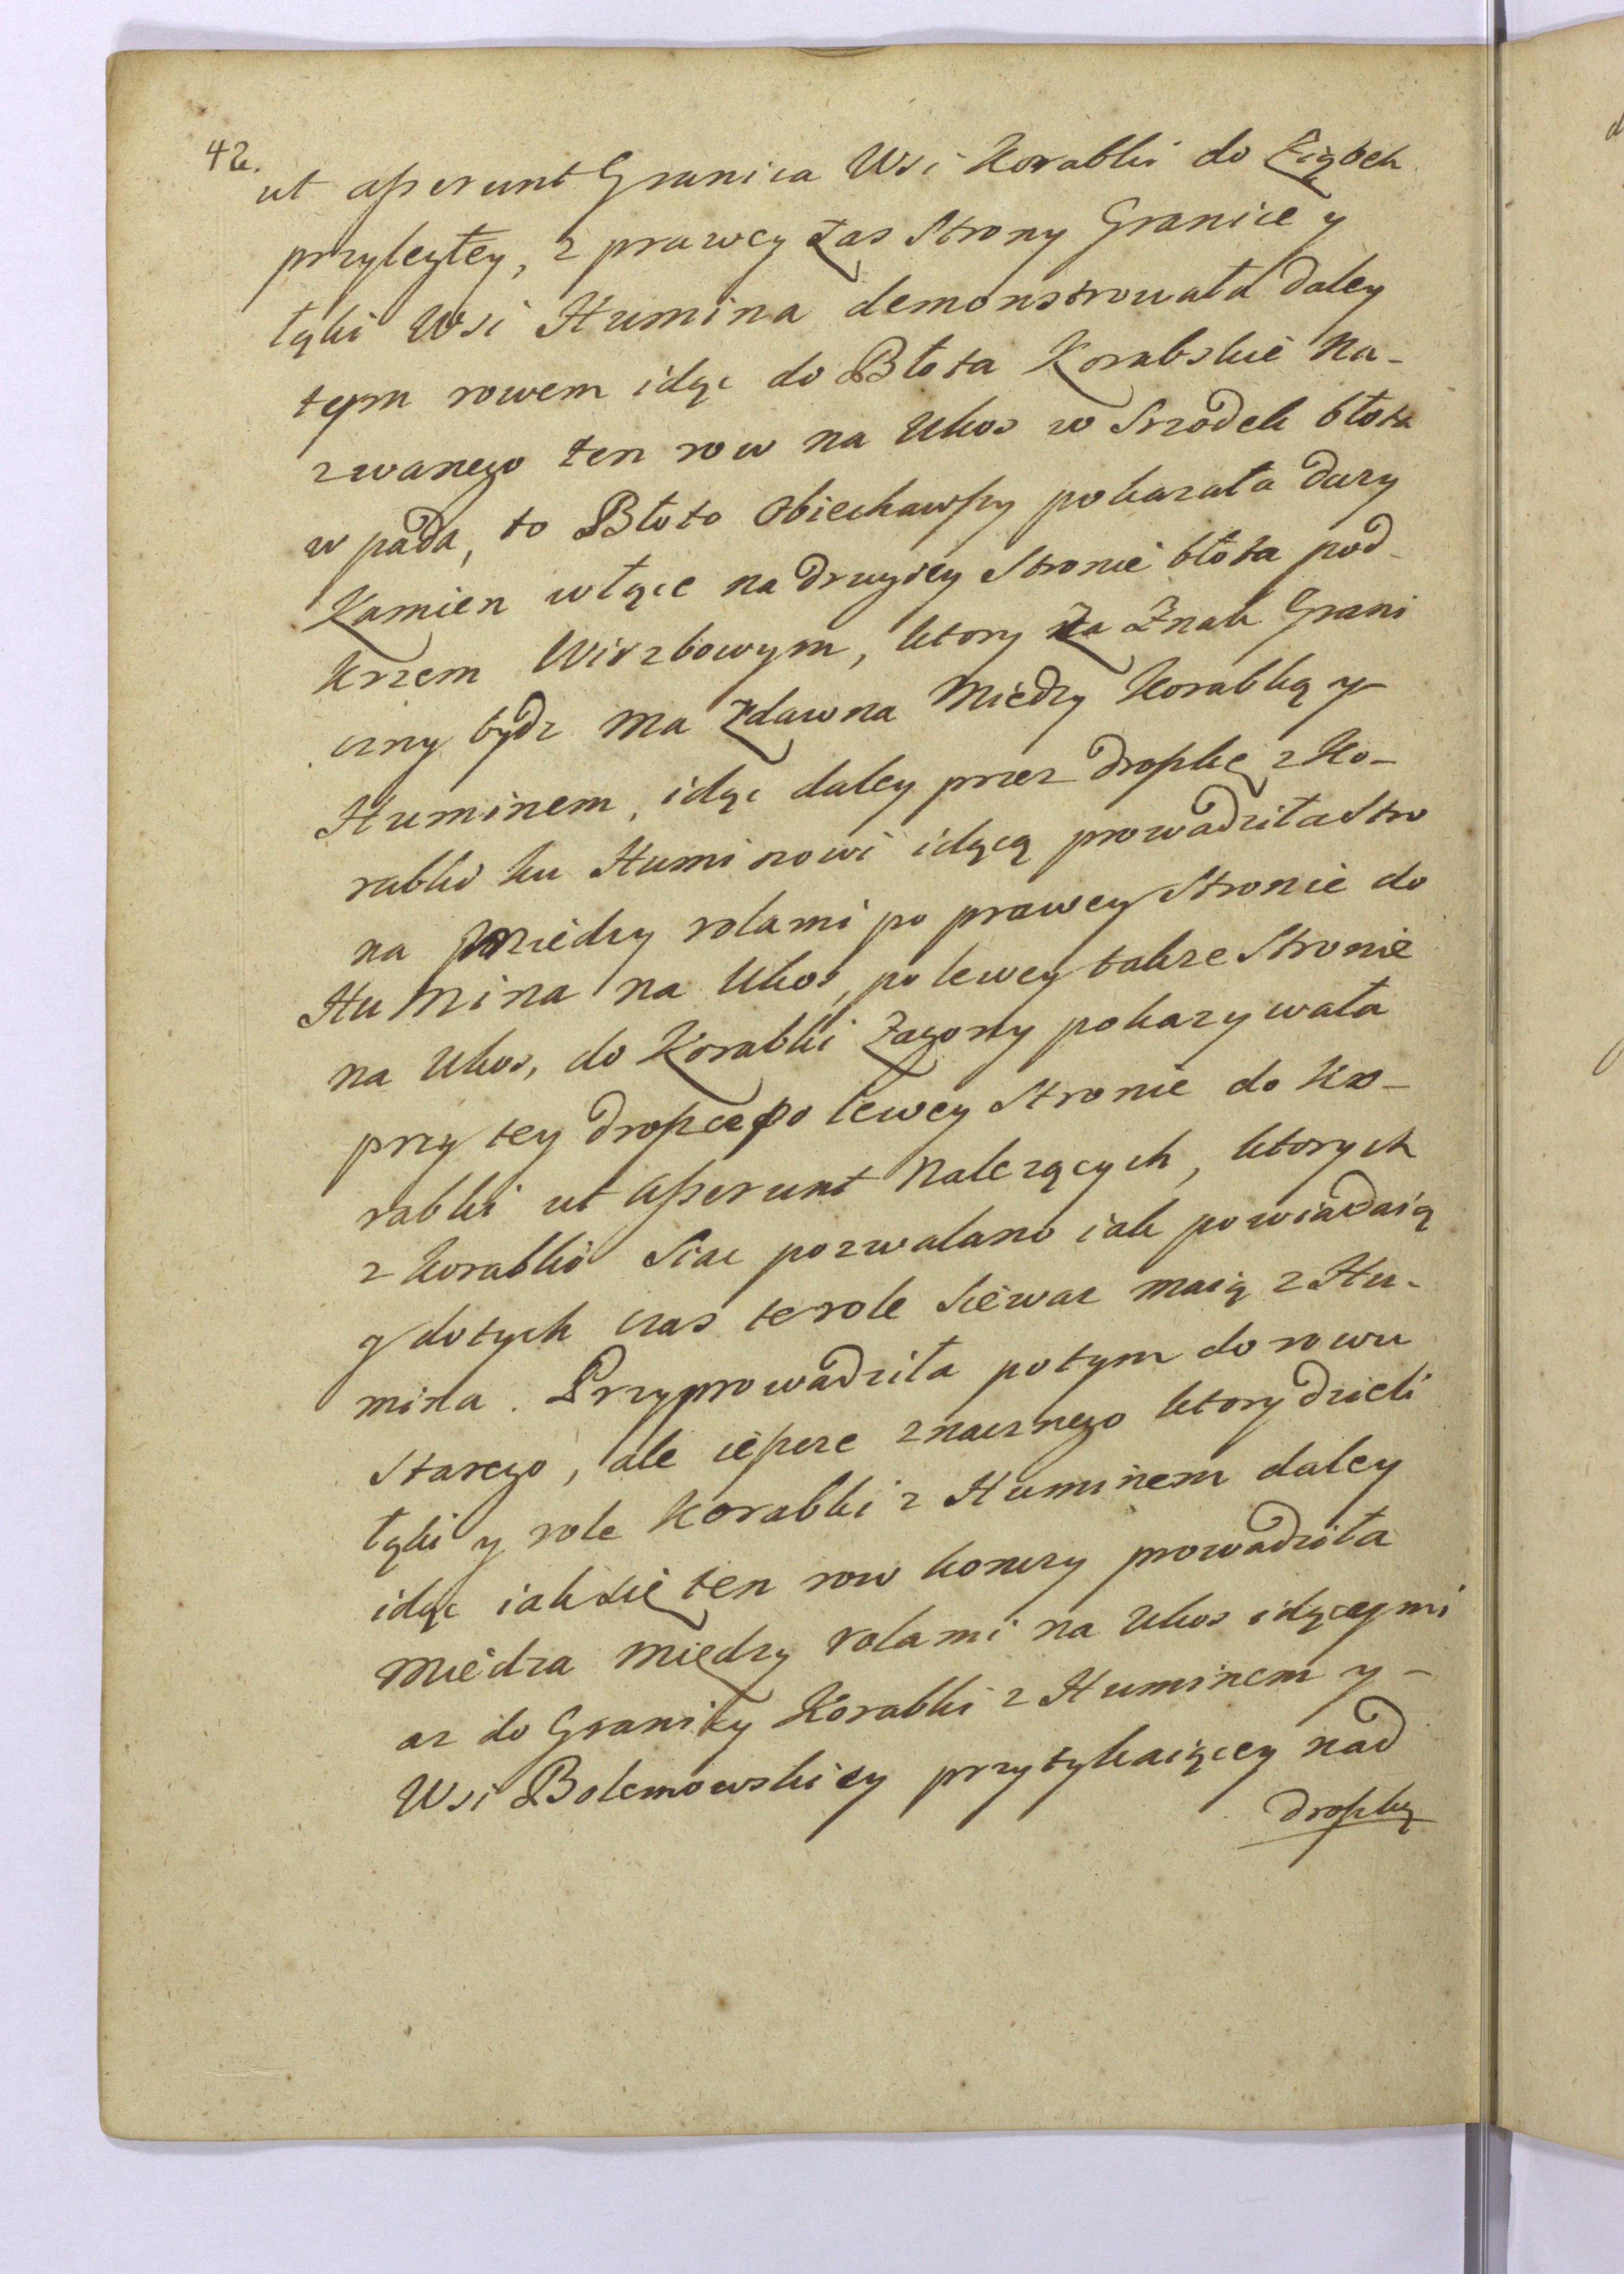 42.
ut asserunt Granica Wsi Korabki do Ziąbek
przyległey, z prawey zas Strony Granice y
łąki Wsi Humina demonstrowała daley
tym rowem idąc do Błota Korabskie na-
zwanego ten row na Ukos w Srzodek błota
wpada, to Błoto Obiechawszy pokazała duzy
Kamien w łące na drugiey Stronie błota pod
Krzem Wirzbowym, ktory za Znak Grani
czny bydz ma zdawna Miedzy Korabką y-
Huminem, idąc daley przez droszkę z Ko-
rabki ku Huminowi idącą prowadziła Stro
na Miedzy rolami po prawey Stronie do
Humina na Ukos, po lewey takze Stronie
na Ukos, do Korabki Zagony pokazywała
przy tey droszce po lewey Stronie do Ko-
rabki ut asserunt nalezących, ktorych
z Korabki Siac pozwalano iak powiadaią
y dotych czas te role Siewac maią z Hu-
mina. Przyprowadziła potym do rowu
Starego, ale ieszcze znacznego ktory dzieli
łąki y role Korabki z Huminem daley
idąc iak się ten row konczy prowadziła
Miedza Między rolami na Ukos idącymi
az do Granicy Korabki z Huminem y-
Wsi Bolemowskiey przytykaiącey nad
droszką